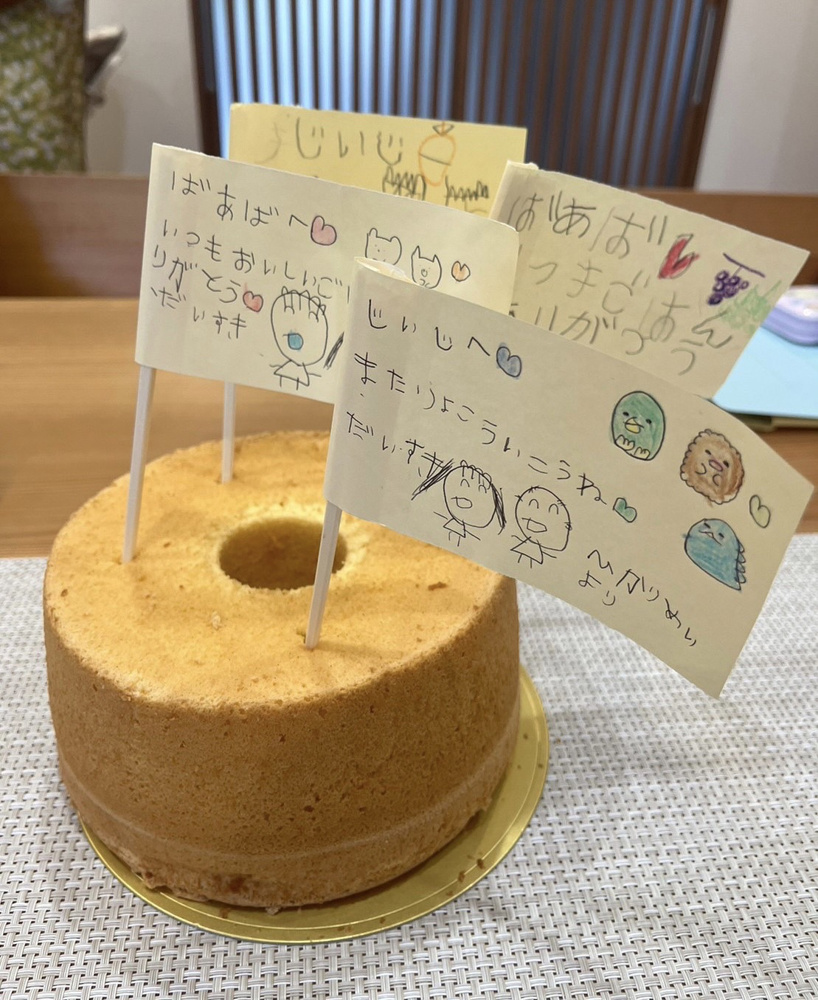 じいじ
ばあばへ
いつもおいしいご
りがとう
だいすき
ばあば
つもごはん
りがとう
じいじへ
またりょこういこうね
だいすき
ひかりめい
より